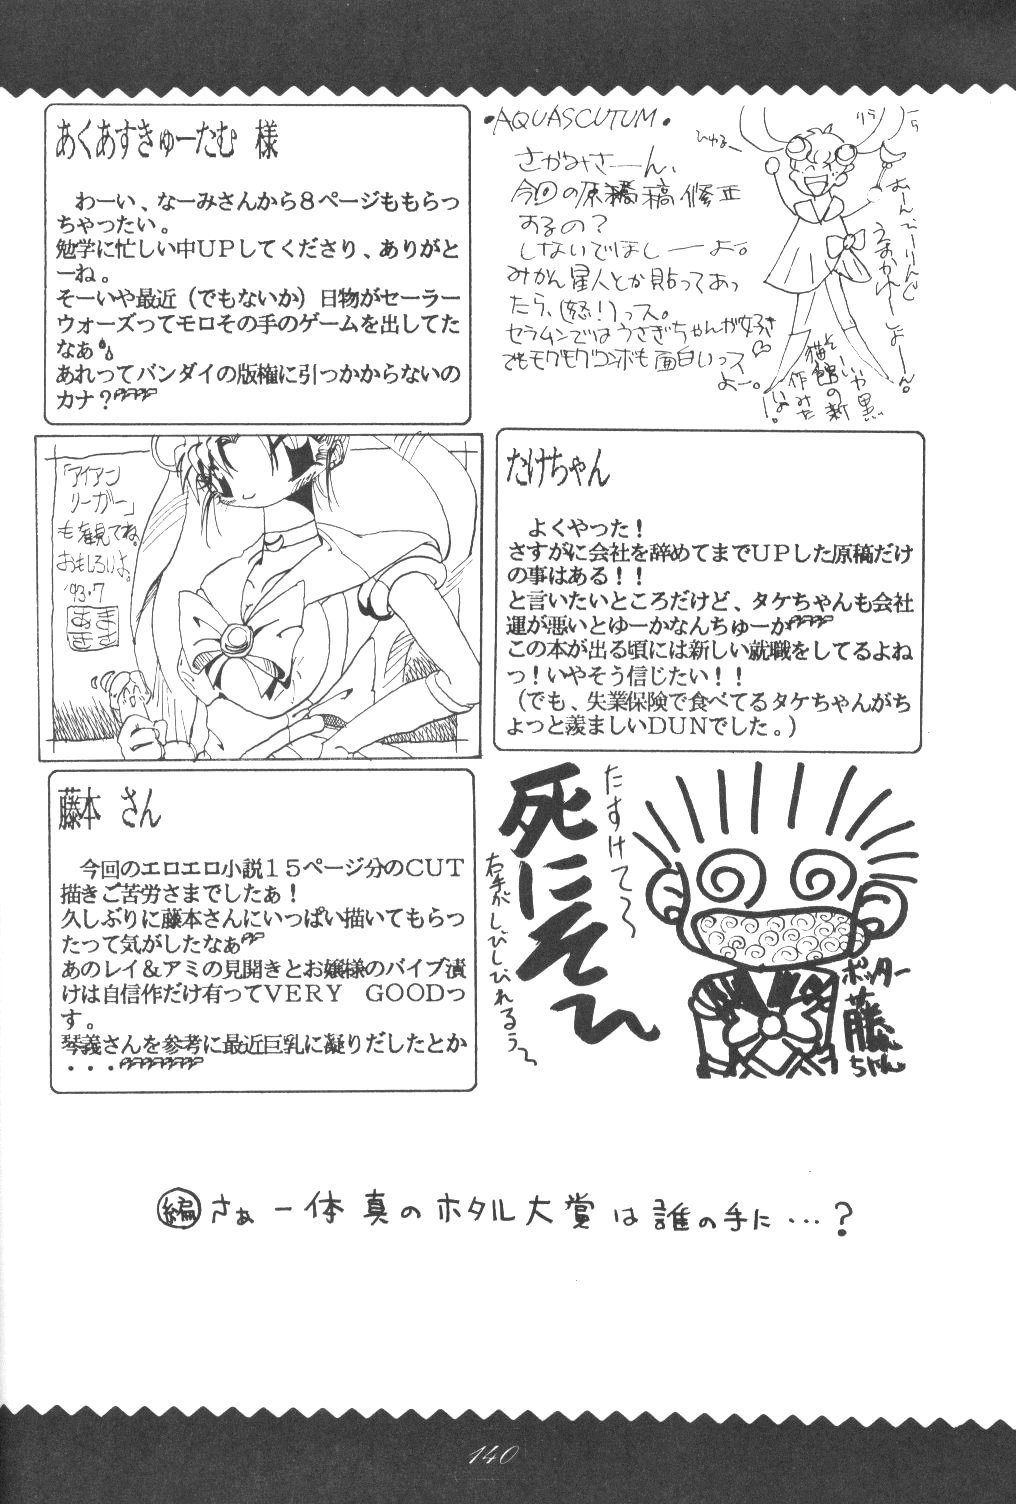 あくあすきゅーたむ 様
わーい、なーみさんから８ページももらっ
ちゃったい。
勉学に忙しい中ＵＰしてくださり、ありがと
ーね。
そーいや最近（でもないか）日物がセーラー
ウォーズってモロその手のゲームを出してた
なぁ
あれってバンダイの版権に引っかからないの
カナ？
•AQUASCUTUM•
さかみさーん、
今回の原稿修正
するの？
しないでほしーよ。
みかん星人とか貼ってあっ
たら、(怒！)っス。
セラムンではうさぎちゃんが好き
でもモグモグコンボも面白いっス
よー。
「アイアン
リーガー」
も観てね。
おもしろいよ。
'93.7
たけちゃん
よくやった！
さすがに会社を辞めてまでＵＰした原稿だけ
の事はある！！
と言いたいところだけど、タケちゃんも会社
運が悪いとゆーかなんちゅーか
この本が出る頃には新しい就職をしてるよね
っ！いやそう信じたい！！
（でも、失業保険で食べてるタケちゃんがち
ょっと羨ましいＤＵＮでした。）
藤本 さん
今回のエロエロ小説１５ページ分のＣＵＴ
描きご苦労さまでしたぁ！
久しぶりに藤本さんにいっぱい描いてもらっ
たって気がしたなぁ
あのレイ＆アミの見開きとお嬢様のバイブ漬
けは自信作だけ有ってＶＥＲＹ ＧＯＯＤっ
す。
琴義さんを参考に最近巨乳に凝りだしたとか
・・・
たすけて〜
死にそー
右手がし、しびれるぅ〜
ポッター
藤
ちゃん
編 さぁ一体真のホタル大賞は誰の手に…？
140